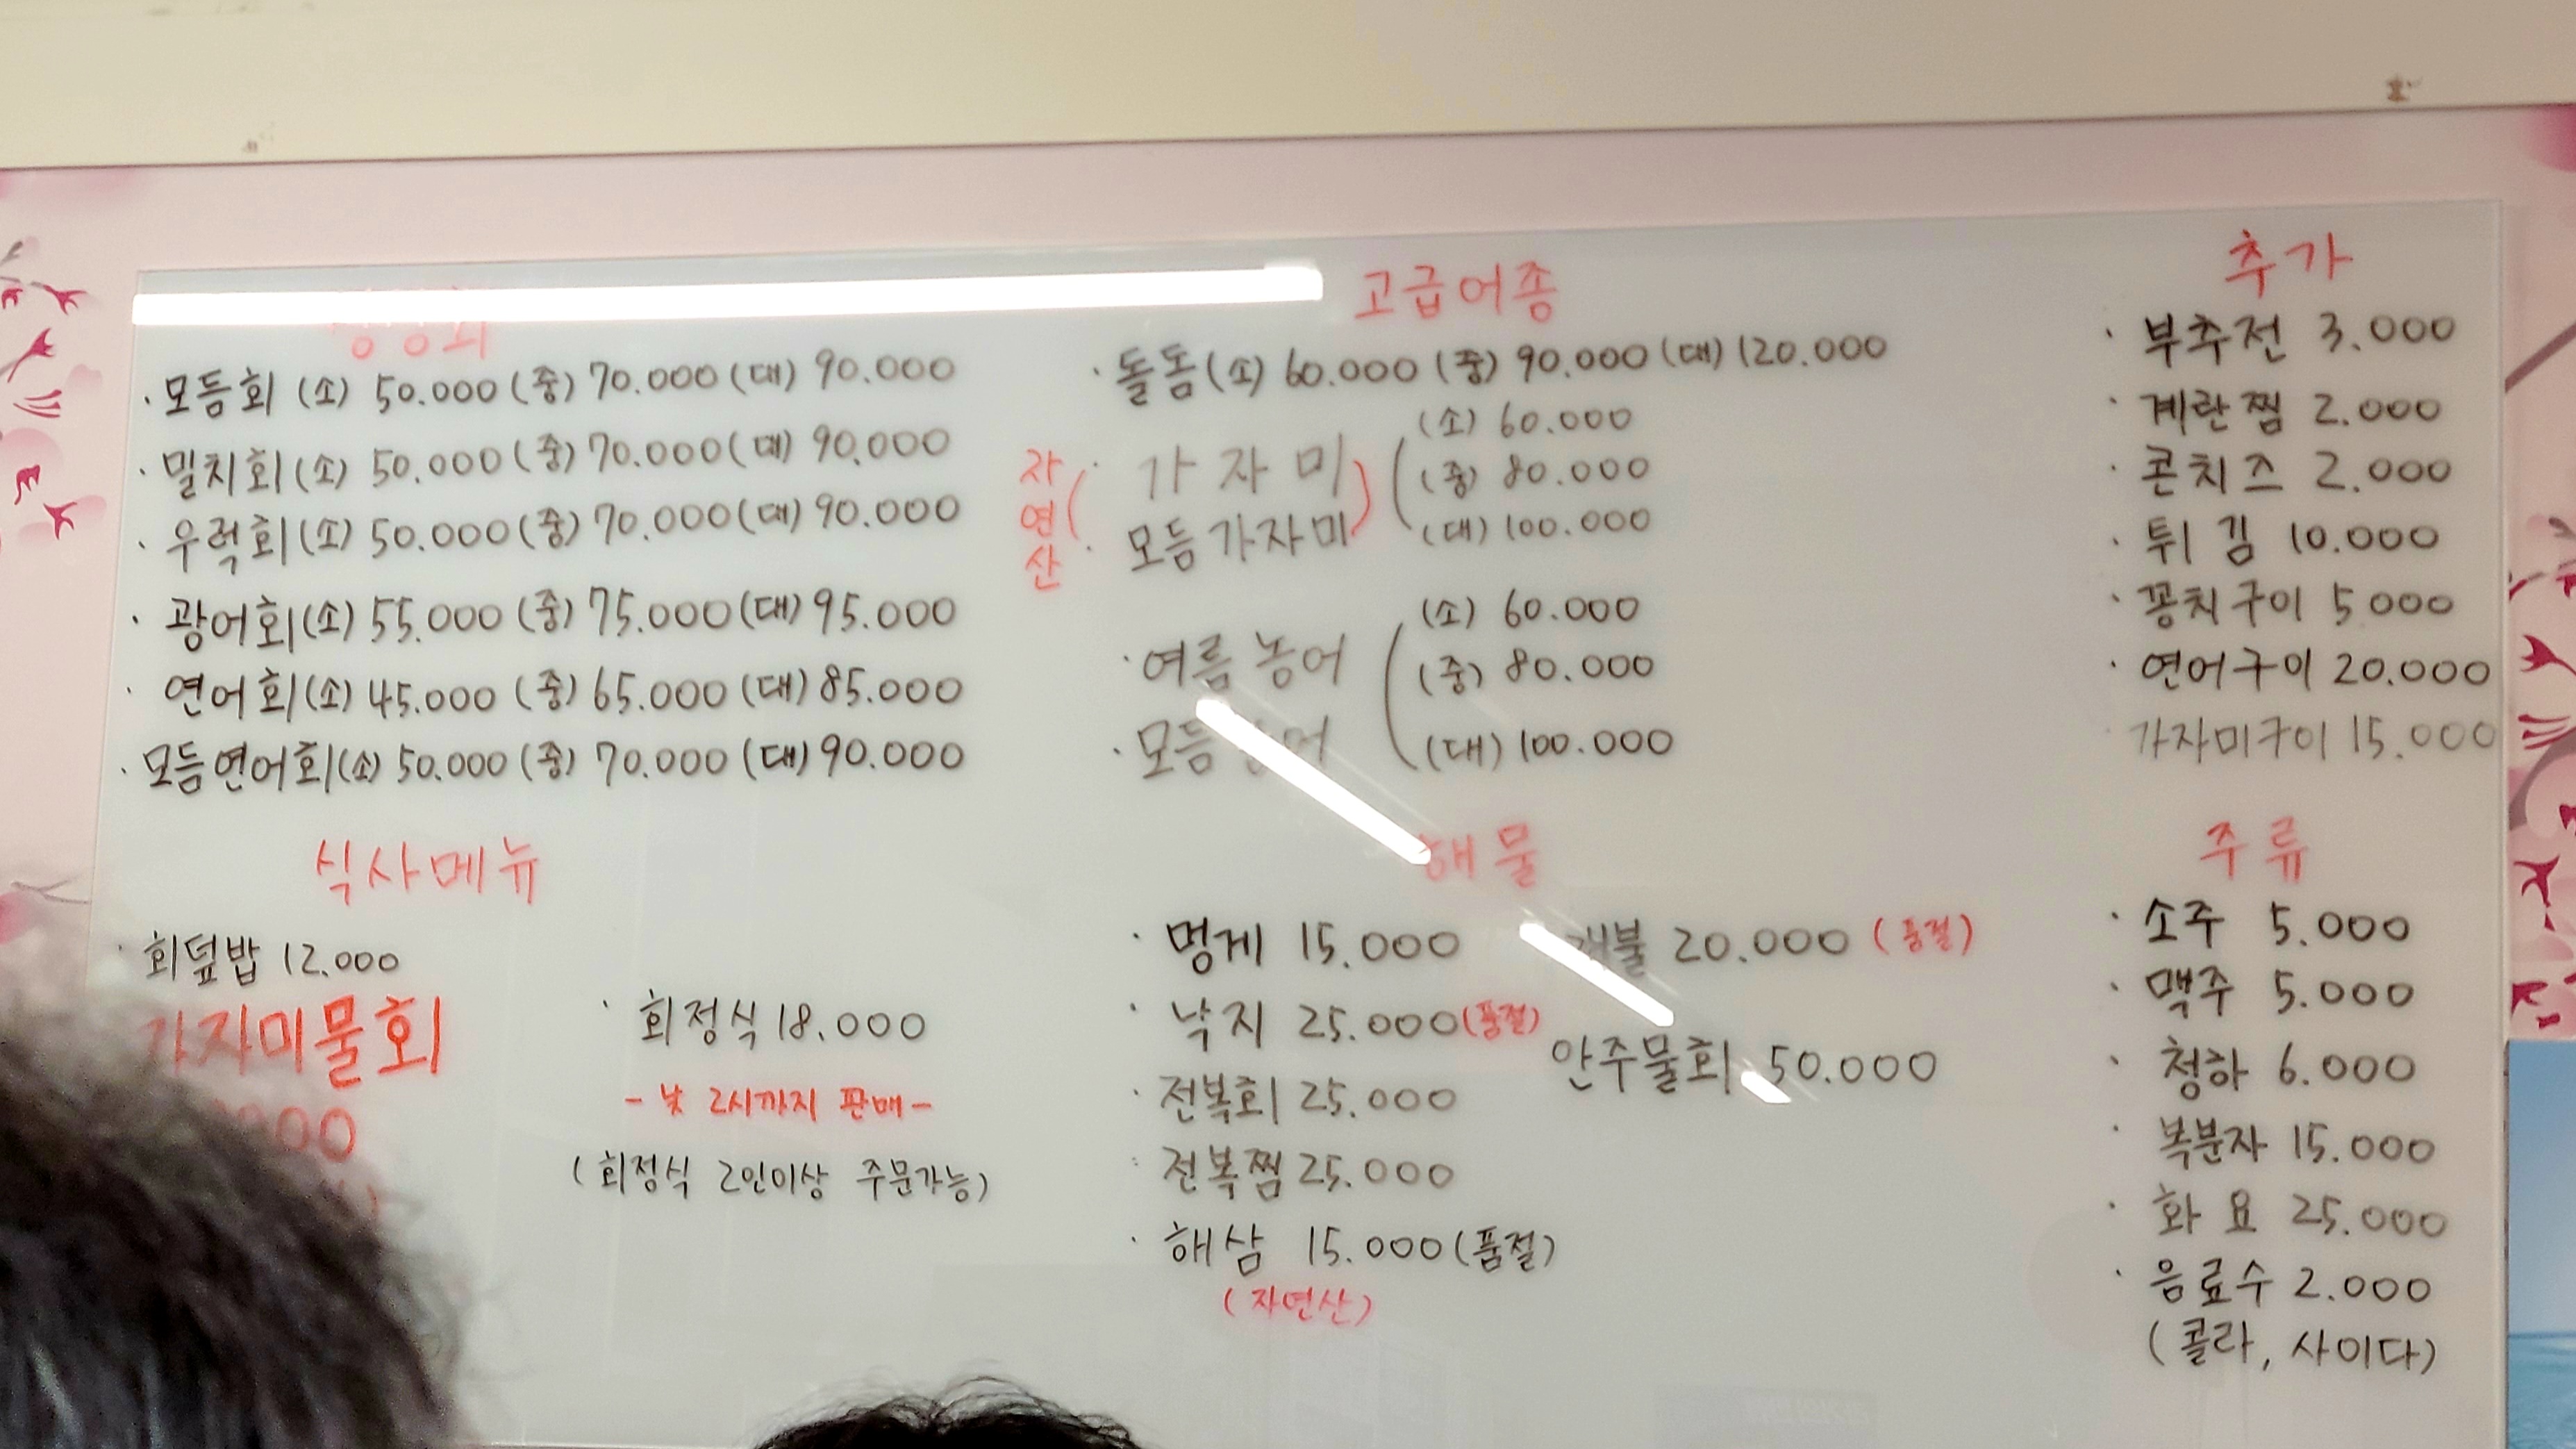 · 모듬회 (소) 50.000 (중) 70.000 (대) 90.000
· 밀치회 (소) 50.000 (중) 70.000 (대) 90.000
· 우럭회 (소) 50.000 (중) 70.000 (대) 90.000
· 광어회 (소) 55.000 (중) 75.000 (대) 95.000
· 연어회 (소) 45.000 (중) 65.000 (대) 85.000
· 모듬연어회 (소) 50.000 (중) 70.000 (대) 90.000
식사메뉴
· 회덮밥 12.000
가자미물회
· 회정식 18.000
- 낮 2시까지 판매 -
(회정식 2인이상 주문가능)
고급어종
· 돌돔 (소) 60.000 (중) 90.000 (대) 120.000
자연산
· 가자미
· 모듬가자미
(소) 60.000
(중) 80.000
(대) 100.000
· 여름 농어
· 모듬
(소) 60.000
(중) 80.000
(대) 100.000
해물
· 멍게 15.000
· 낙지 25.000 (품절)
· 전복회 25.000
· 전복찜 25.000
· 해삼 15.000 (품절)
(자연산)
20.000 (품절)
안주물회 50.000
추가
· 부추전 3.000
· 계란찜 2.000
· 콘치즈 2.000
· 튀김 10.000
· 꽁치구이 5.000
· 연어구이 20.000
· 가자미구이 15.000
주류
· 소주 5.000
· 맥주 5.000
· 청하 6.000
· 복분자 15.000
· 화요 25.000
· 음료수 2.000
(콜라, 사이다)